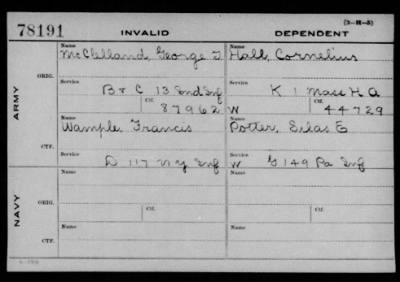 (3-H-5)
78191 INVALID DEPENDENT
Name Name
McClelland, George T Hall, Cornelius
ORIG.
Service Service
B & C 13 Ind Inf K 1 Mass H A
Ctf. Ctf.
87962 W 44729
ARMY
Name Name
Wample Francis Potter, Silas E
CTF.
Service Service
D 117 N Y Inf W G 149 Pa Inf
Name Name
ORIG.
Service Ctf. Service Ctf.
NAVY
Name Name
CTF.
Service Service